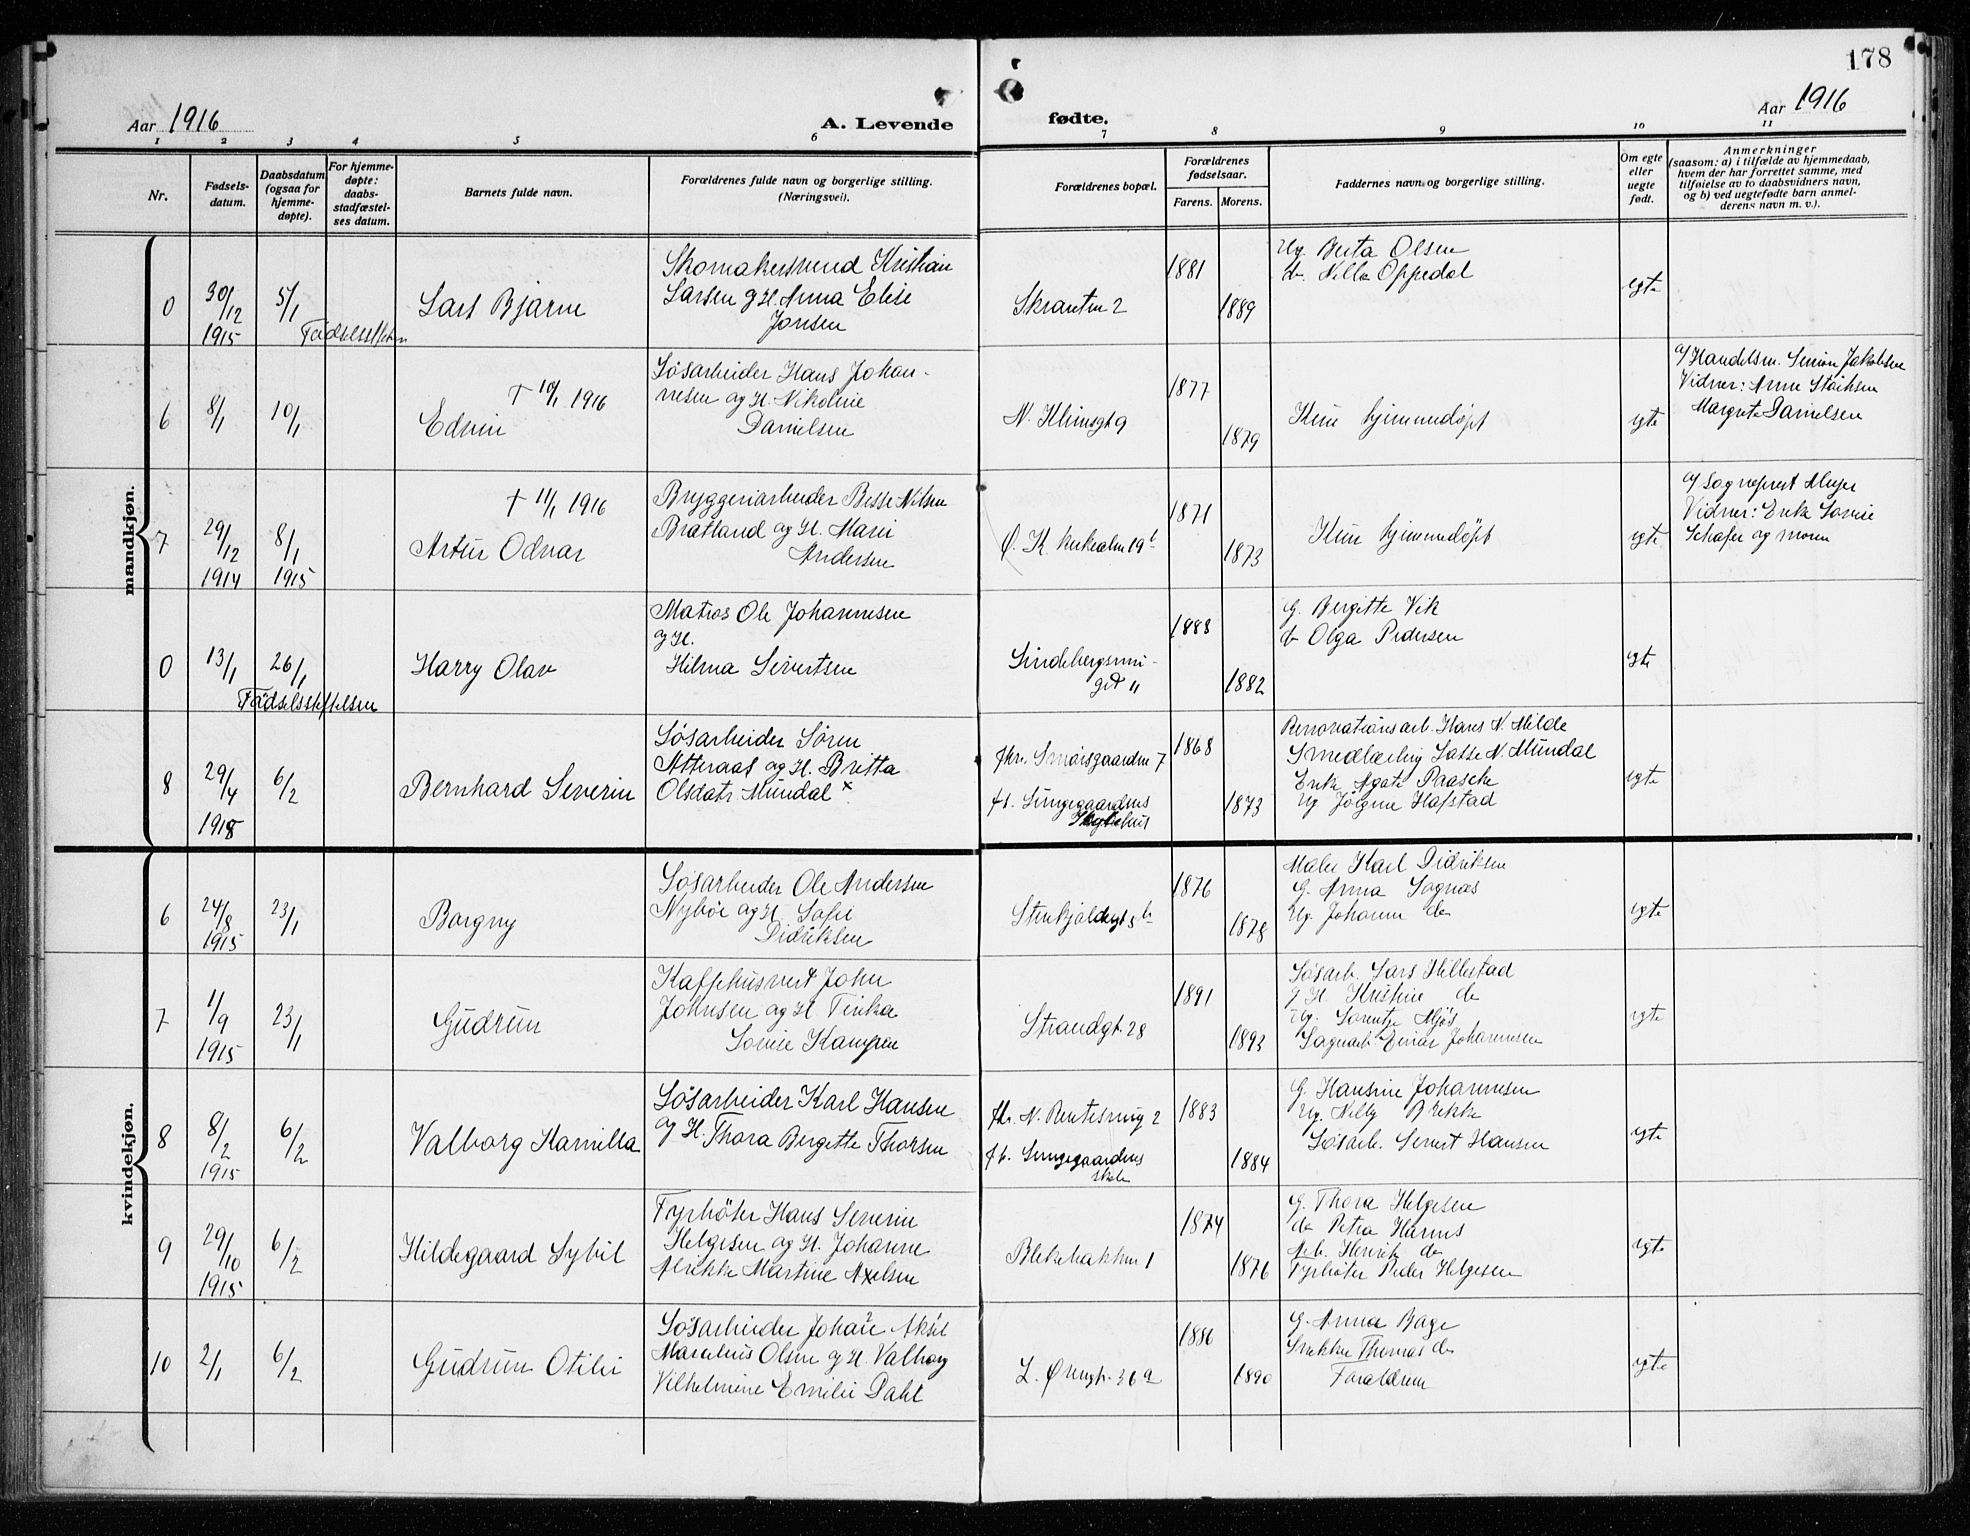 178
Aar 1916
A. Levende
fødte.
Aar 1916
1 2 3 4 5 6 7 8 9 10 11
Nr.
Fødsels-
datum.
Daabsdatum
(ogsaa for
hjemme-
døpte).
For hjemme-
døpte:
daabs-
stadfæstel-
ses datum.
Barnets fulde navn.
Forældrenes fulde navn og borgerlige stilling.
(Næringsvei).
Forældrenes bopæl.
Forældrenes
fødselsaar.
Farens. Morens.
Faddernes navn og borgerlige stilling.
Om egte
eller
uegte
født.
Anmerkninger
(saasom: a) i tilfælde av hjemmedaab,
hvem der har forrettet samme, med
tilføielse av to daabsvidners navn,
og b) ved uegtefødte barn anmel-
derens navn m. v.).
mandkjøn.
0
30/12
1915
5/1
Fødselsstiftelsen
Lars Bjarne
Skomakersvend Kristian
Larsen og H. Anna Elise
Jonsen
Skranten 2
1881
1889
Ug Berta Olsen
do Nille Oppedal
egte
6
8/1
10/1
† 10/1 1916
Edvin
Løsarbeider Hans Johan-
nesen og H. Nikoline
Danielsen
N. Klimsgt 9
1877
1879
Kun hjemmedøpt
egte
a/ Handelsm. Jakobsen
Vidner: Anne
Margrete Danielsen
7
29/12
1914
8/1
1915
† 11/1 1916
Artur Odvar
Bryggeriarbeider Nilsen
Bratland og H. Marie
Andersen
Ø. Kirkealm 19 b
1871
1873
Kun hjemmedøpt
egte
a/ Sogneprest Meyer
Vidner: Enke Lovise
Schäfer og moren
0
13/1
26/1
Fødselsstiftelsen
Harry Olav
Matros Ole Johannesen
og H.
Hilma Sivertsen
1883
1882
G. Bergitte Vik
do Olga Pedersen
egte
8
29/4
1915
6/2
Bernhard Severin
Løsarbeider Søren
Atteraas og H. Britta
Olsdatr Mundal x
fhv. Smørsgaarden 7
ft. Lungegaardens
Sykehus
1868
1873
Renovationsarb. Hans N. Milde
Smedlærling Lasse N. Mundal
Enke Agate Paasche
Ug Jørgine Hafstad
egte
kvindekjøn.
6
24/8
1915
23/1
Borgny
Løsarbeider Ole Andersen
Nybøe og H Sofie
Didriksen
Stenkjeldergt 5 b
1876
1878
Maler Karl Didriksen
G. Anna Sognæs
Ug. Johanne do
egte
7
1/9
1915
23/1
Gudrun
Kaffehusvert John
Johnsen og H
Lovise Kampen
Strandgt. 28
1891
1893
Løsarb. Lars Hillestad
g H Kristine do
Ug. Mjøs
Einar Johannesen
egte
8
8/2
1915
6/2
Valborg Kamilla
Løsarbeider Karl Hansen
og H. Thora Bergitte Thorsen
fhv. N. 2
ft. Lungegaardens
skole
1883
1884
G. Hansine Johannesen
Ug. Nelly Brekke
Løsarb. Sivert Hansen
egte
9
29/10
1915
6/2
Hildegaard Sybil
Fyrbøter Hans Severin
Helgesen og H. Johanne
Alvikke Martine Axelsen
Blekebakken 1
1874
1876
G. Thora Helgesen
do Petra Harms
Arb. Henrik do
Fyrbøter Peder Helgesen
egte
10
2/1
6/2
Gudrun Otilie
Løsarbeider Johan Aksel
Marelius Olsen og H. Valborg
Vilhelmine Emilie Dahl
L. Øvregt. 36 a
1886
1890
G. Anna Bage
Snekker Thomas do
Forældrene
egte